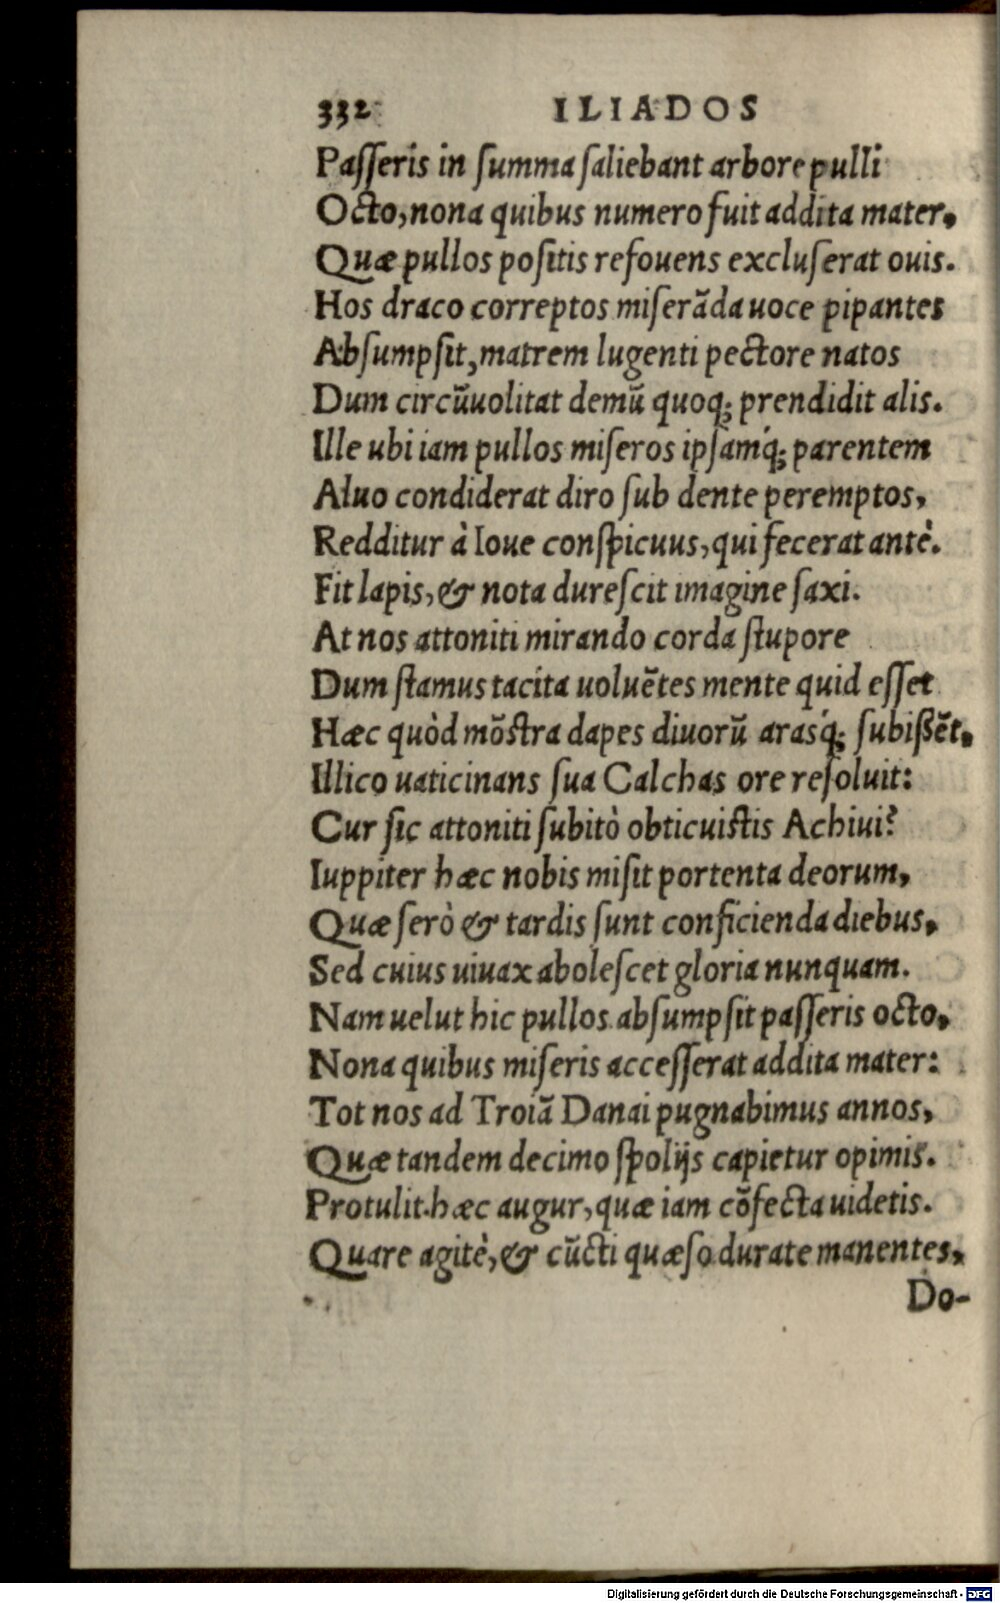 332 ILIADOS
Paſſeris in ſumma ſaliebant arbore pulli
Octo, nona quibus numero fuit addita mater,
Quæ pullos poſitis refouens excluſerat ouis.
Hos draco correptos miſerãda uoce pipantes
Abſumpſit, matrem lugenti pectore natos
Dum circũuolitat demũ quoq; prendidit alis.
Ille ubi iam pullos miſeros ipſamq́; parentem
Aluo condiderat diro ſub dente peremptos,
Redditur à Ioue conſpicuus, qui fecerat antè.
Fit lapis, & nota dureſcit imagine ſaxi.
At nos attoniti mirando corda ſtupore
Dum ſtamus tacita uoluẽtes mente quid eſſet
Hæc quòd mõſtra dapes diuorũ arasq́; ſubißẽt,
Illico uaticinans ſua Calchas ore reſoluit:
Cur ſic attoniti ſubitò obticuiſtis Achiui?
Iuppiter hæc nobis miſit portenta deorum,
Quæ ſerò & tardis ſunt conficienda diebus,
Sed cuius uiuax aboleſcet gloria nunquam.
Nam uelut hic pullos abſumpſit paſſeris octo,
Nona quibus miſeris acceſſerat addita mater:
Tot nos ad Troiã Danai pugnabimus annos,
Quæ tandem decimo ſpolijs capietur opimis.
Protulit hæc augur, quæ iam cõfecta uidetis.
Quare agitè, & cũcti quæſo durate manentes,
Do-
Digitalisierung gefördert durch die Deutsche Forschungsgemeinschaft - DFG